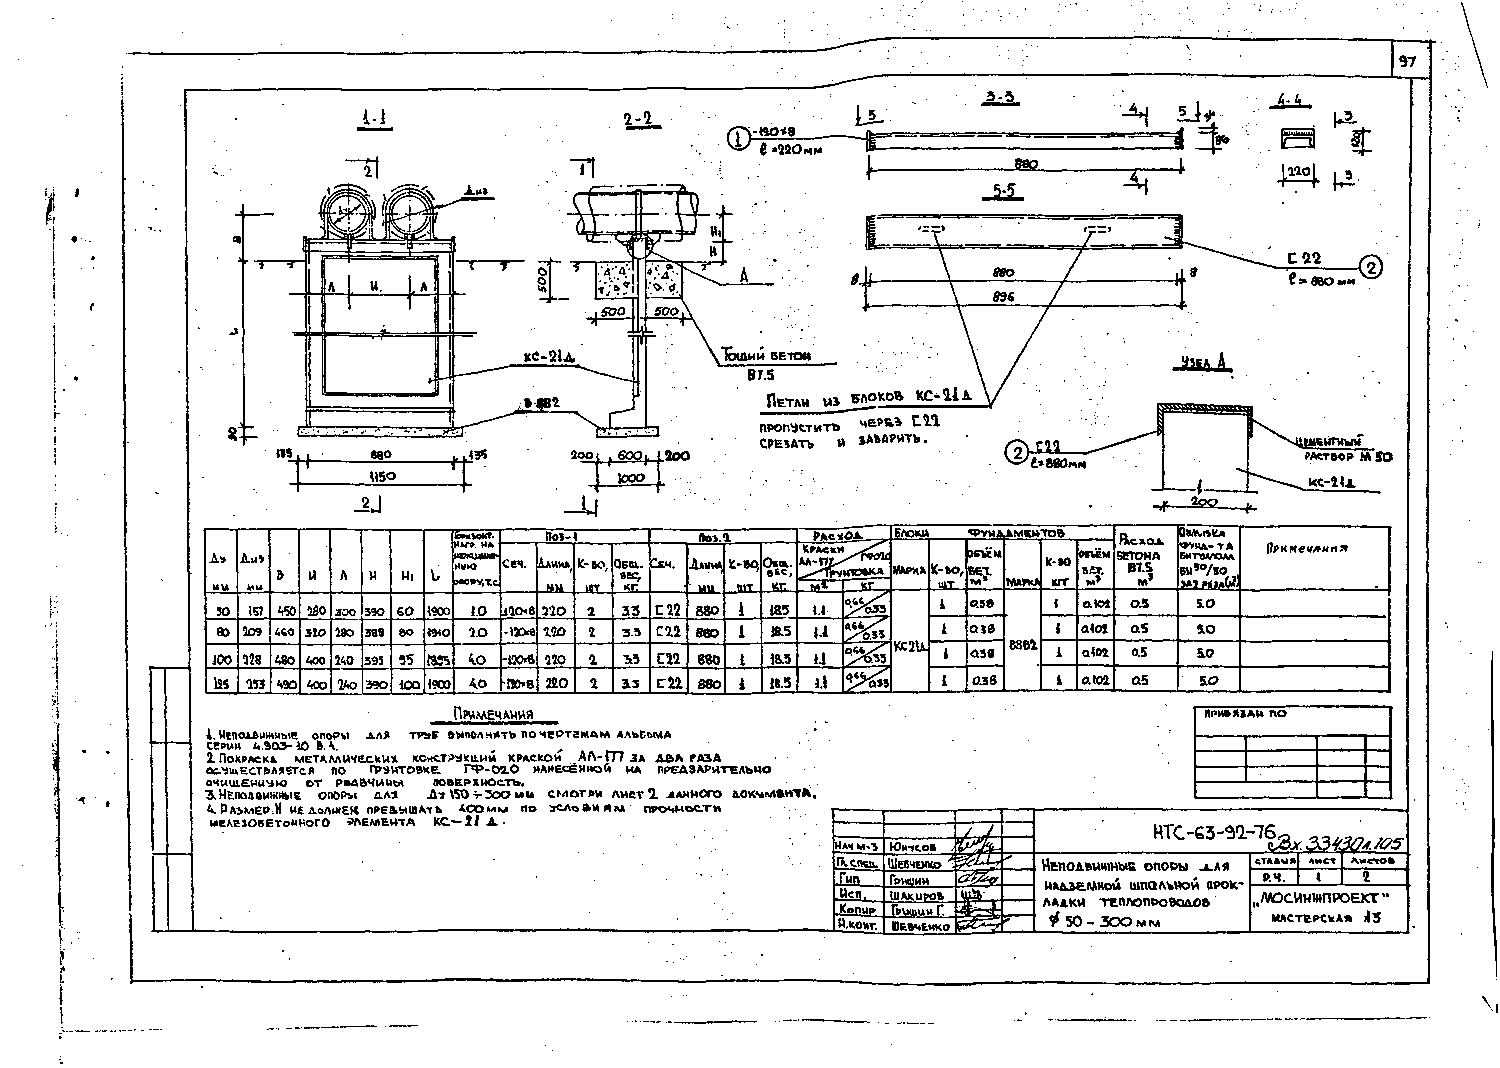 97
1-1
2-2
3-3
4-4
5-5
2
1
1
-120×8
ℓ=220мм
5
4
5
3
880
220
120
3
4
Диз
В
Н1
Н
500
500
500
А
А
И
А
L
КС-21Д
В-882
Тощий бетон
В7.5
8
880
8
896
С 22
2
ℓ=880мм
Петли из блоков КС-21Д
пропустить через С22
срезать и заварить.
Узел А
2
С22
ℓ=880мм
Цементный
раствор М50
КС-21Д
200
135
880
135
1150
200
600
200
1000
2
1
Ду мм
Диз мм
В
И
А
Н
Н1
L
Поз-1
Сеч.
Длина, мм
К-во, шт
Общ. вес, кг.
Поз.2
Сеч.
Длина мм
К-во, шт
Общ. вес, кг.
Расход
краски АЛ-177 м²
Грунтовка ГФ020 кг
Блоки фундаментов
Марка
К-во, шт
Объём бет. м³
Марка
К-во шт
Объём бет. м³
Расход бетона В7.5 м³
Примечания
50 157 450 280 300 390 60 1900 1.0 -120×8 220 2 3.3 С22 880 1 18.5 1.1 0.66/0.33 КС21Д 1 0.38 8882 1 0.102 0.5 5.0
80 209 460 320 280 388 80 1910 2.0 -120×8 220 2 3.3 С22 880 1 18.5 1.1 0.66/0.33 1 0.38 1 0.102 0.5 5.0
100 228 480 400 240 395 95 1895 4.0 -120×8 220 2 3.3 С22 880 1 18.5 1.1 0.66/0.33 1 0.38 1 0.102 0.5 5.0
125 253 490 400 240 390 100 1900 4.0 -120×8 220 2 3.3 С22 880 1 18.5 1.1 0.66/0.33 1 0.38 1 0.102 0.5 5.0
Примечания
1. Неподвижные опоры для труб выполнять по чертежам альбома
серии 4.903-10 в.4.
2. Покраска металлических конструкций краской АЛ-177 за два раза
осуществляется по грунтовке ГФ-020 нанесённой на предварительно
очищенную от ржавчины поверхность.
3. Неподвижные опоры для Ду 150÷300мм смотри лист 2 данного документа.
4. Размер И не должен превышать 400мм по условиям прочности
железобетонного элемента КС-21 Д.
Привязан по
НТС-63-92-76
Вх. 33430л.105
Нач М-3 Юнусов
Гл. спец. Шевченко
Гип Гришин
Исп. Шакиров
Копир Гришин Г.
Н.конт. Шевченко
Неподвижные опоры для
надземной шпальной прок-
ладки теплопроводов
Ф 50-300мм
стадия лист листов
Р.Ч. 1 2
„Мосинжпроект"
мастерская 13